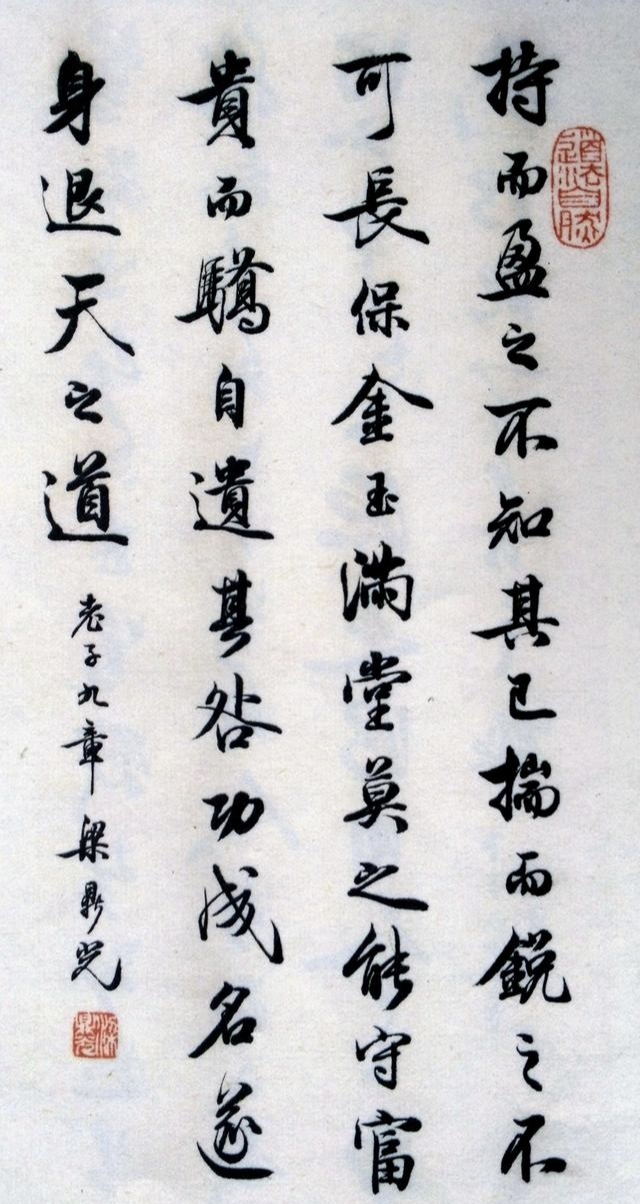 道法自然
持而盈之不知其已揣而銳之不
可長保金玉滿堂莫之能守富
貴而驕自遺其咎功成名遂
身退天之道
老子九章梁鼎光
梁鼎光